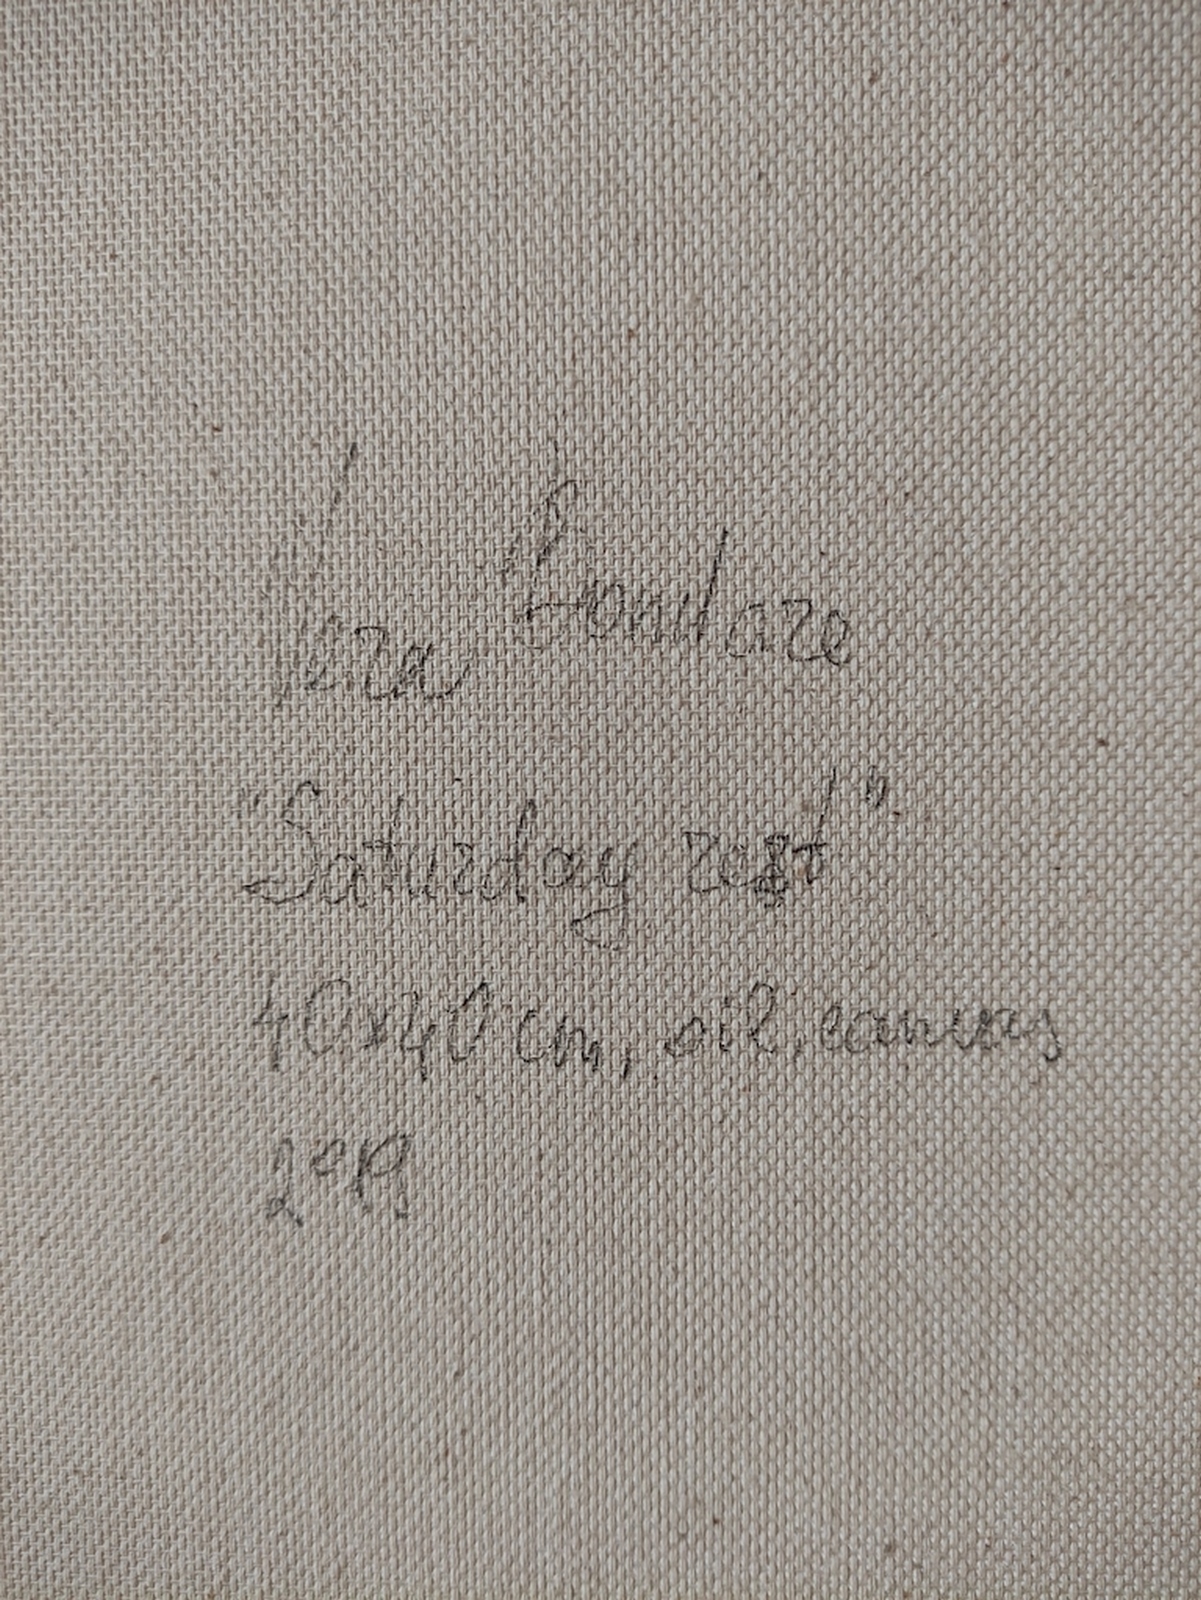 Vera Bondare
"Saturday rest"
40x40 cm, oil, canvas
2019